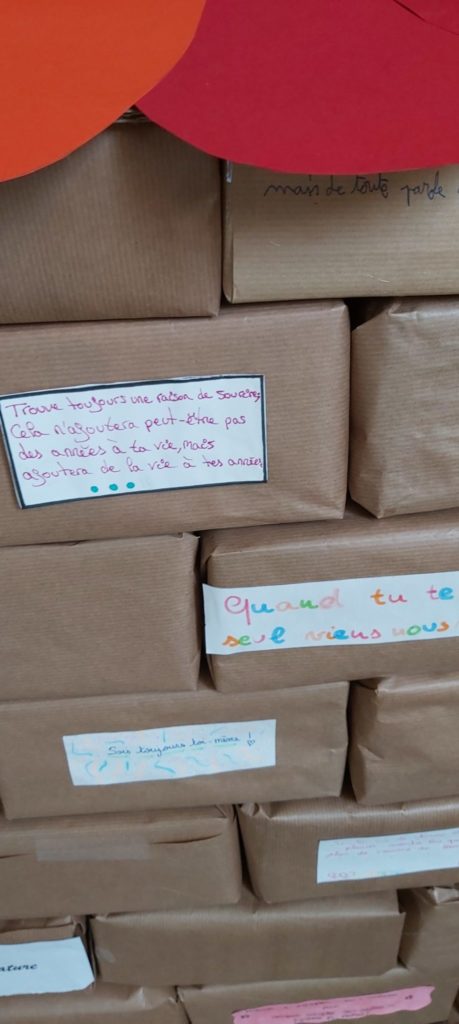 mais de toute parle
Trouve toujours une raison de sourire,
Cela n'ajoutera peut-être pas
des années à ta vie, mais
ajoutera de la vie à tes années
...
Quand tu te
seul viens nous
Sois toujours toi-même !
ature